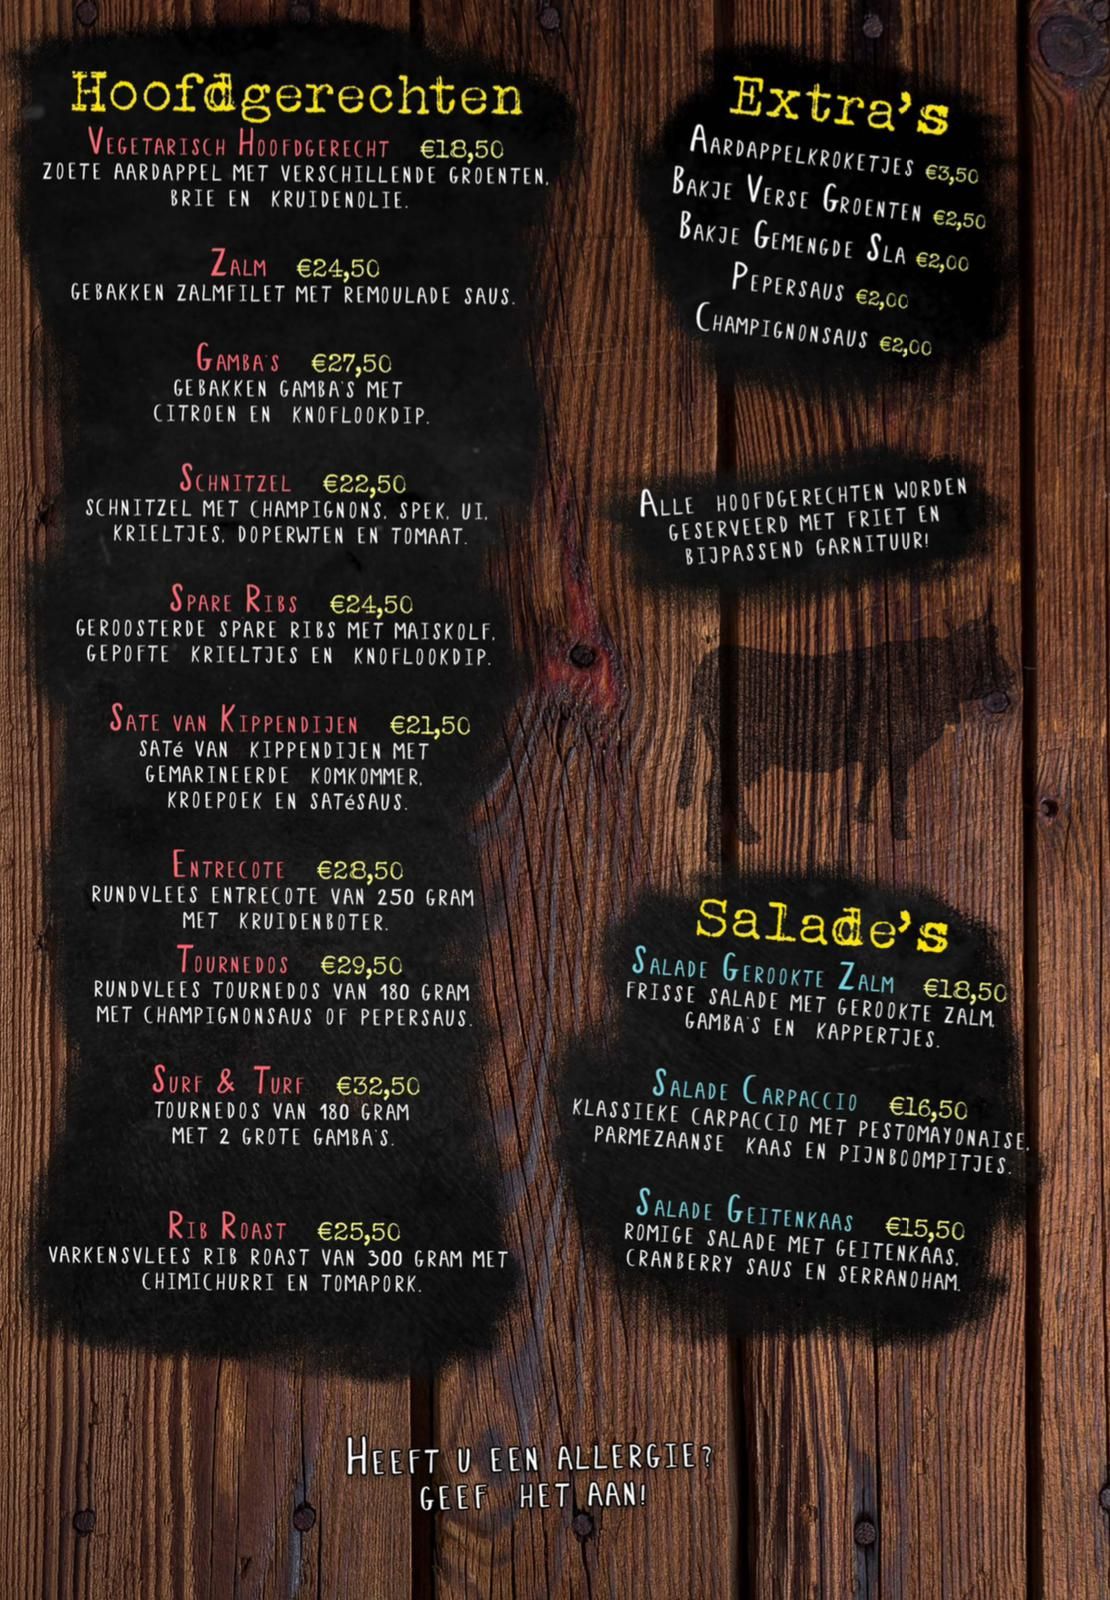 Hoofdgerechten
Vegetarisch Hoofdgerecht €18,50
zoete aardappel met verschillende groenten,
brie en kruidenolie.
Zalm €24,50
gebakken zalmfilet met remoulade saus.
Gamba's €27,50
gebakken gamba's met
citroen en knoflookdip.
Schnitzel €22,50
schnitzel met champignons, spek, ui,
krieltjes, doperwten en tomaat.
Spare Ribs €24,50
geroosterde spare ribs met maiskolf,
gepofte krieltjes en knoflookdip.
Sate van Kippendijen €21,50
saté van kippendijen met
gemarineerde komkommer,
kroepoek en satésaus.
Entrecote €28,50
rundvlees entrecote van 250 gram
met kruidenboter.
Tournedos €29,50
rundvlees tournedos van 180 gram
met champignonsaus of pepersaus.
Surf & Turf €32,50
tournedos van 180 gram
met 2 grote gamba's.
Rib Roast €25,50
varkensvlees rib roast van 300 gram met
chimichurri en tomapork.
Extra's
Aardappelkroketjes €3,50
Bakje Verse Groenten €2,50
Bakje Gemengde Sla €2,00
Pepersaus €2,00
Champignonsaus €2,00
Alle hoofdgerechten worden
geserveerd met friet en
bijpassend garnituur!
Salade's
Salade Gerookte Zalm €18,50
frisse salade met gerookte zalm,
gamba's en kappertjes.
Salade Carpaccio €16,50
klassieke carpaccio met pestomayonaise,
parmezaanse kaas en pijnboompitjes.
Salade Geitenkaas €15,50
romige salade met geitenkaas,
cranberry saus en serranoham.
Heeft u een allergie?
geef het aan!